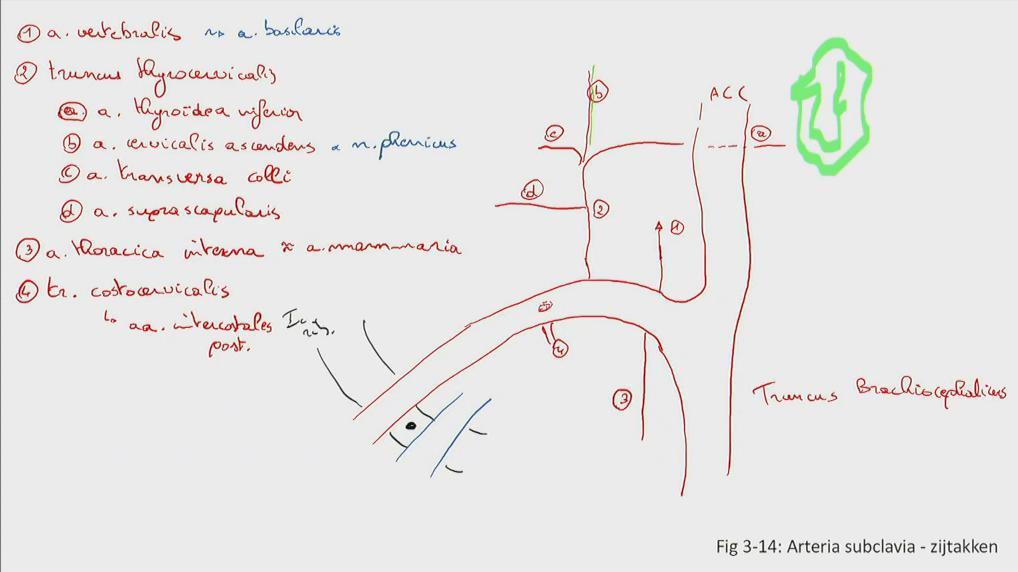 ① a. vertebralis ~> a. basilaris
② truncus thyrocervicalis
ⓐ a. thyroïdea inferior
ⓑ a. cervicalis ascendens & n. phrenicus
ⓒ a. transversa colli
ⓓ a. suprascapularis
③ a. thoracica interna ≈ a. mammaria
④ tr. costocervicalis
↳ aa. intercostales
post.
ACC
ⓑ
ⓒ
ⓐ
ⓓ
②
①
⑤
④
③
Truncus Brachiocephalicus
Fig 3-14: Arteria subclavia - zijtakken